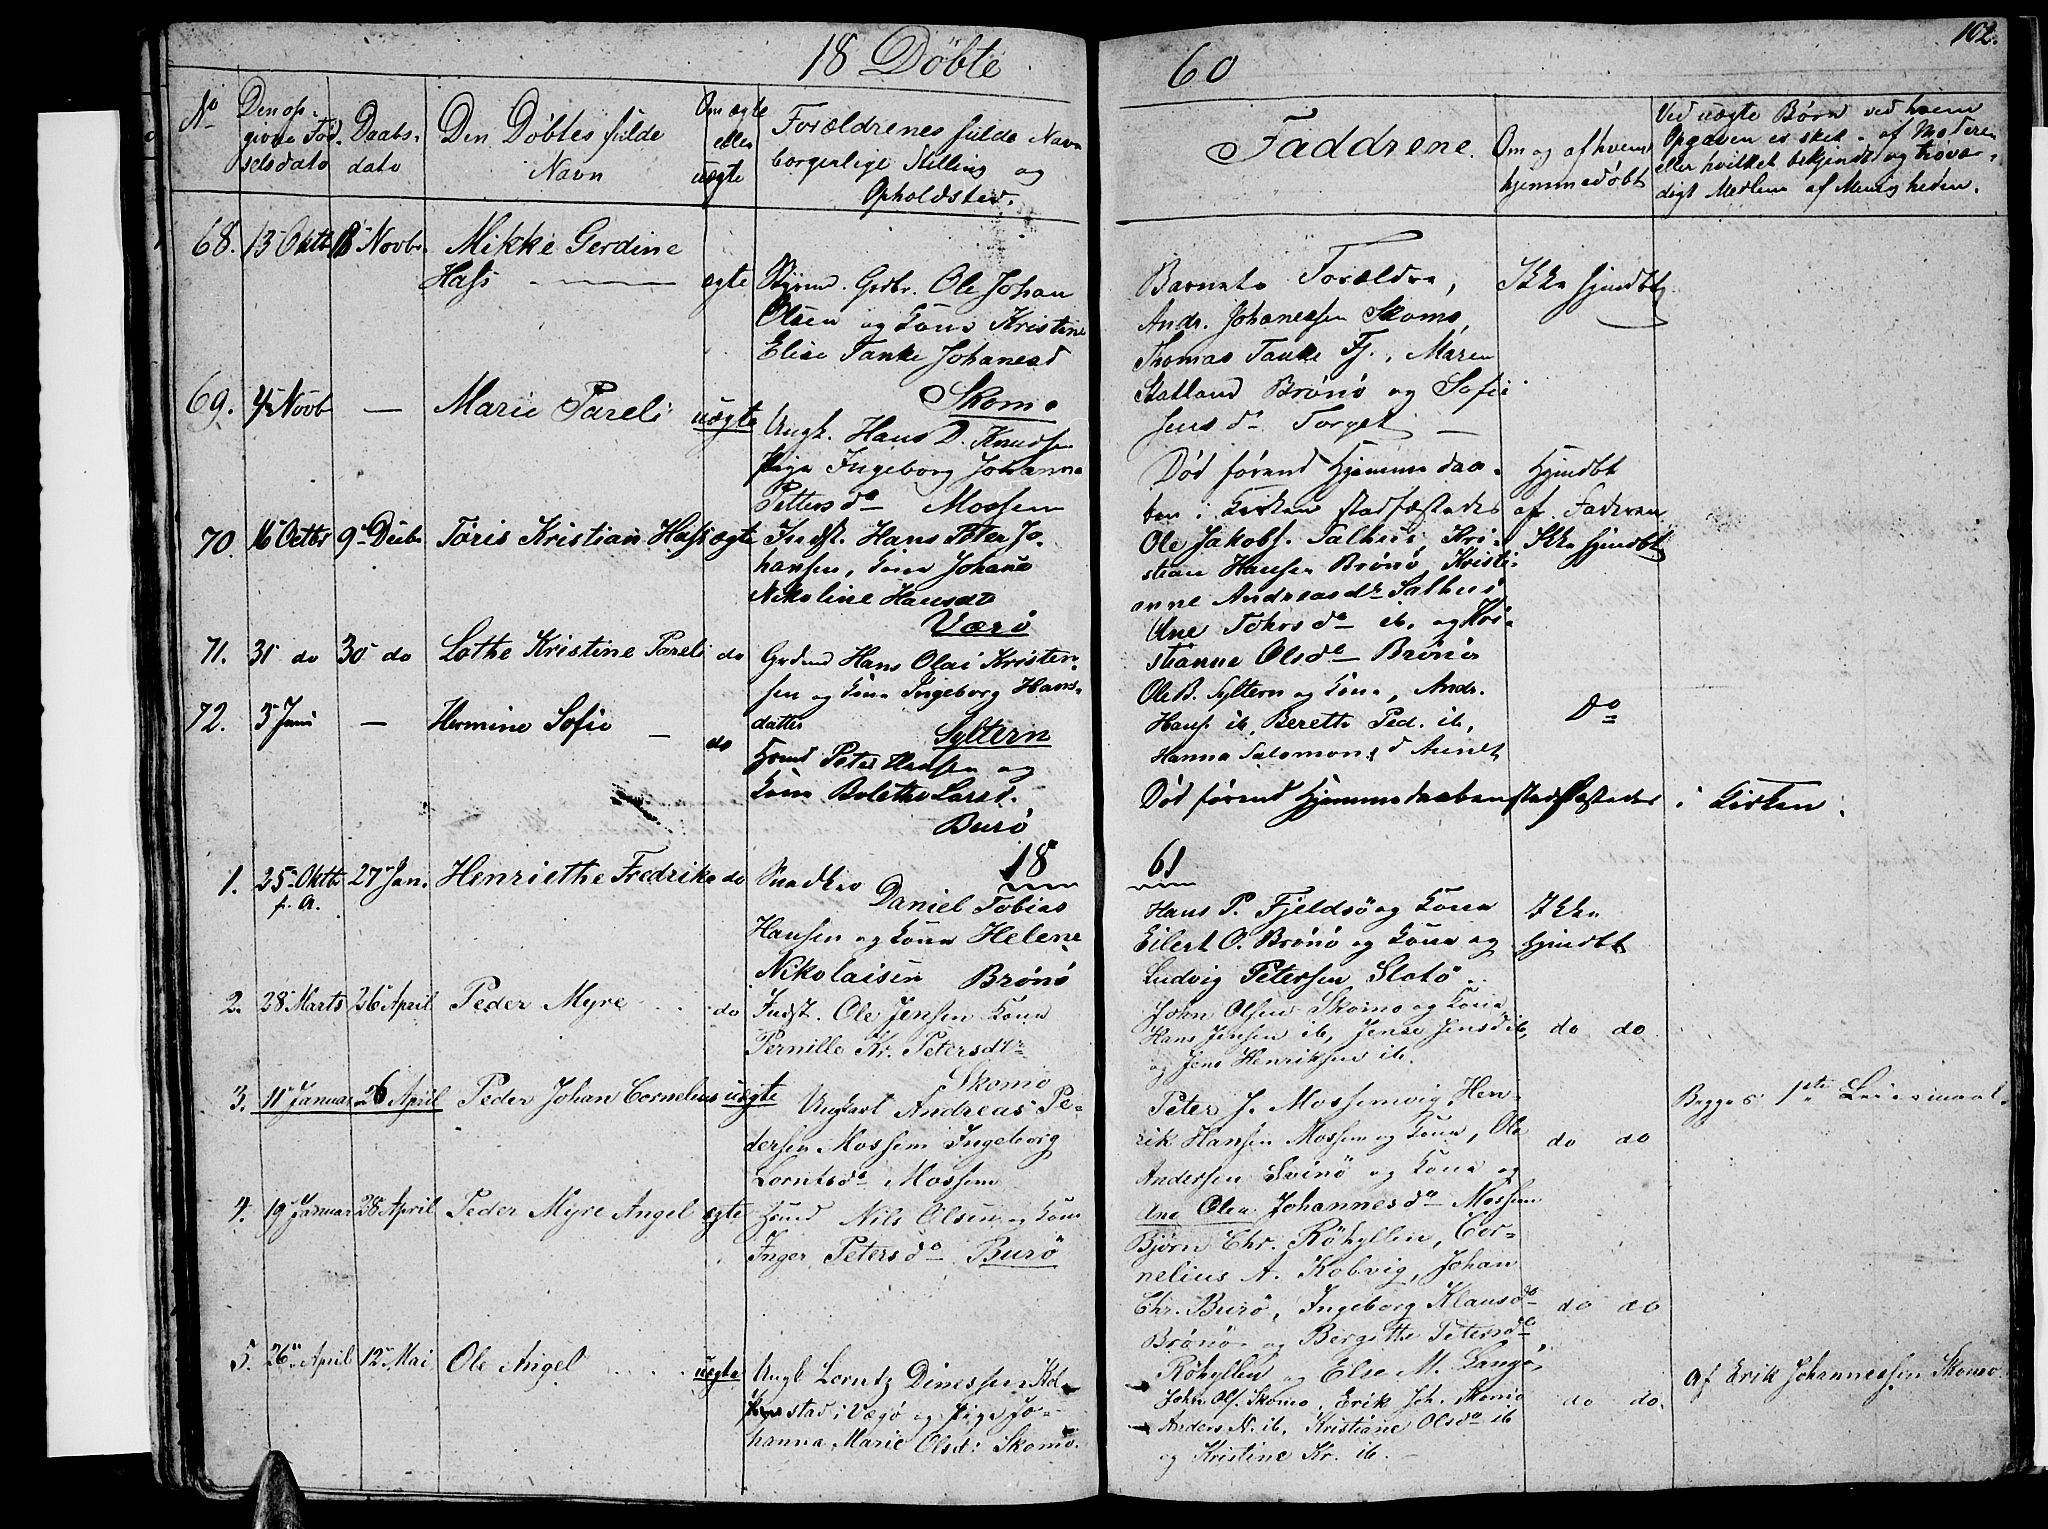 18 Døbte
60
102.
No
Den op-
givne Fød
selsdato
Daabs-
dato
Den Døbtes fulde
Navn
Om ægte
eller
uægte
Forældrenes fulde Navn
borgerlige Stilling og
Opholdsted.
Faddrene.
Om og af hvem
hjemmedøbt
Ved uægte Børn ved hvem
Opgaven er sket - af Moderen
eller hvilket bekjendt og trovær-
digt Medlem af Menigheden.
68. 13 Oktb 18 Novbr Mikke Gerdine
Hass ægte
Ole Johan
Olsen og Kone Kristine
Elise Tanke Johanesd
Skomo
Barnets Forældre,
Andr. Johanessen Skomo,
Thomas Tanke Fj., Maren
Statland Brønø og Sofie
Jens da Torget
Ikke hjmdbt
69. 4 Novb — Marie Pareli uægte
Ungk. Hans D. Knudsen
Pige Ingeborg Johanna
Petters da Mossem
Død førend Hjemmedaa-
ben i Kirken stadfæstedes
Hjmdbt
af Faderen
70. 16 Octbr 9 Decbr Tøris Kristian Hass ægte
Indst. Hans Peter Jo-
hansen, Kone Johane
Nikoline Hansdt
Værø
Ole Jakobs. Salhus, Kri-
stian Hansen Brønø, Kristi-
anne Andreasdr Salhus,
Ane Tohrsda ib. og Kri-
stianne Olsda Brønø
Ikke hjmdbt
71. 31 do 30 do Lothe Kristine Pareli do
Grdmd Hans Olai Kristen-
sen og Kone Ingeborg Hans-
datter
Syltern
Ole B. Syltern og Kone, Andr.
Hans. ib, Berette Ped. ib,
Hanna Salomons d
Do
72. 3 Juni — Hermine Sofie — do
Peter Hansen og
Kone Bolethe Larsd.
Burø
Død førend Hjemmedaaben stadfæstedes i Kirken.
18
61
1. 25 Oktb 27 Jan. Henriethe Fredrike do
f. A.
Snedker
Daniel Tobias
Hansen og Kone Helene
Nikolaisen Brønø
Hans P. Fjeldsø og Kone
Eilert O. Brønø og Kone og
Ludvig Petersen Slotø
Ikke
hjmdbt
2. 28 Marts 26 April Peder Myre do
Indst. Ole Jensen Kone
Pernille Kr. Petersdtr
Skomo
John Olsen Skomo og Kone,
Hans Jensen ib, Jense Jensd ib,
og Jens Henriksen ib.
do do
3. 11 Januar 26 April Peder Johan Cornelius uægte
Ungkarl Andreas Pe-
dersen Mossem Ingeborg
Lorntsda Mossem
Peter J. Mossemvig, Hen-
rik Hansen Mossem og Kone, Ole
Andersen Svinø og Kone og
Ane Olea Johannesda Mossem
do do
Begges 1ste Leiermaal.
4. 19 Januar 28 April Peder Myre Angel ægte
Nils Olsen og Kone
Inger Petersda Burø
Bjørn Chr. Røhyllen, Cor-
nelius A. Kobvig, Johan
Chr. Burø, Ingeborg Klausda
Brønø og Bergitthe Petersda
Røhyllen og Else M. Langø,
do do
5. 26 April 12 Mai Ole Angel uægte
Ungk Lorntz Dinessen Hol-
stad i Vægø og Pige Jo-
hanna Marie Olsdt: Skomo.
John Ols. Skomo, Erik Joh. Skomo
Anders N. ib. Kristiane Olsda ib
og Kristine Kr. ib.
do do.
Af Erik Johannessen Skomo